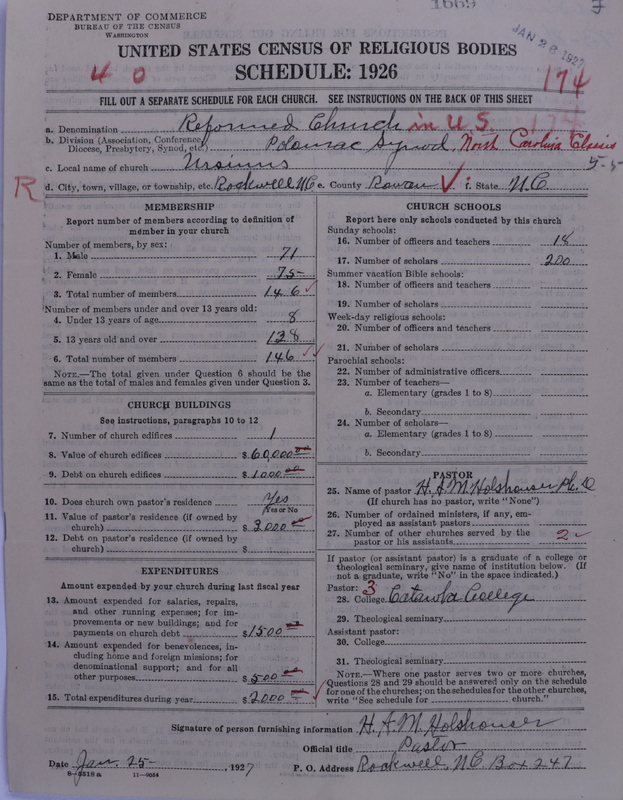 DEPARTMENT OF COMMERCE
BUREAU OF THE CENSUS
WASHINGTON
1669
JAN 28 1927
UNITED STATES CENSUS OF RELIGIOUS BODIES
SCHEDULE: 1926
4 0
174
FILL OUT A SEPARATE SCHEDULE FOR EACH CHURCH. SEE INSTRUCTIONS ON THE BACK OF THIS SHEET
a. Denomination Reformed Church in U.S. 174
b. Division (Association, Conference, Diocese, Presbytery, Synod, etc.) Potomac Synod, North Carolina Classis
c. Local name of church Ursinus 5-5
R d. City, town, village, or township, etc. Rockwell NC e. County Rowan f. State N.C.
MEMBERSHIP
Report number of members according to definition of
member in your church
Number of members, by sex:
1. Male 71
2. Female 75
3. Total number of members 146
Number of members under and over 13 years old:
4. Under 13 years of age 8
5. 13 years old and over 138
6. Total number of members 146
NOTE.—The total given under Question 6 should be the
same as the total of males and females given under Question 3.
CHURCH BUILDINGS
See instructions, paragraphs 10 to 12
7. Number of church edifices 1
8. Value of church edifices $ 60,000
9. Debt on church edifices $ 1000
10. Does church own pastor's residence Yes
Yes or No
11. Value of pastor's residence (if owned by
church) $ 3000
12. Debt on pastor's residence (if owned by
church) $
EXPENDITURES
Amount expended by your church during last fiscal year
13. Amount expended for salaries, repairs,
and other running expenses; for im-
provements or new buildings; and for
payments on church debt $ 1500
14. Amount expended for benevolences, in-
cluding home and foreign missions; for
denominational support; and for all
other purposes $ 500
15. Total expenditures during year $ 2000
CHURCH SCHOOLS
Report here only schools conducted by this church
Sunday schools:
16. Number of officers and teachers 18
17. Number of scholars 200
Summer vacation Bible schools:
18. Number of officers and teachers
19. Number of scholars
Week-day religious schools:
20. Number of officers and teachers
21. Number of scholars
Parochial schools:
22. Number of administrative officers
23. Number of teachers—
a. Elementary (grades 1 to 8)
b. Secondary
24. Number of scholars—
a. Elementary (grades 1 to 8)
b. Secondary
PASTOR
25. Name of pastor H. A. M. Holshouser Ph. D
(If church has no pastor, write "None")
26. Number of ordained ministers, if any, em-
ployed as assistant pastors
27. Number of other churches served by the
pastor or his assistants 2
If pastor (or assistant pastor) is a graduate of a college or
theological seminary, give name of institution below. (If
not a graduate, write "No" in the space indicated.)
Pastor: 3
28. College Catawba College
29. Theological seminary
Assistant pastor:
30. College
31. Theological seminary
NOTE.—Where one pastor serves two or more churches,
Questions 28 and 29 should be answered only on the schedule
for one of the churches; on the schedules for the other churches,
write "See schedule for church."
Signature of person furnishing information H. A. M. Holshouser
Official title Pastor
Date Jan. 25 , 1927 P. O. Address Rockwell, N.C. Box 247
8—5518a 11—9054